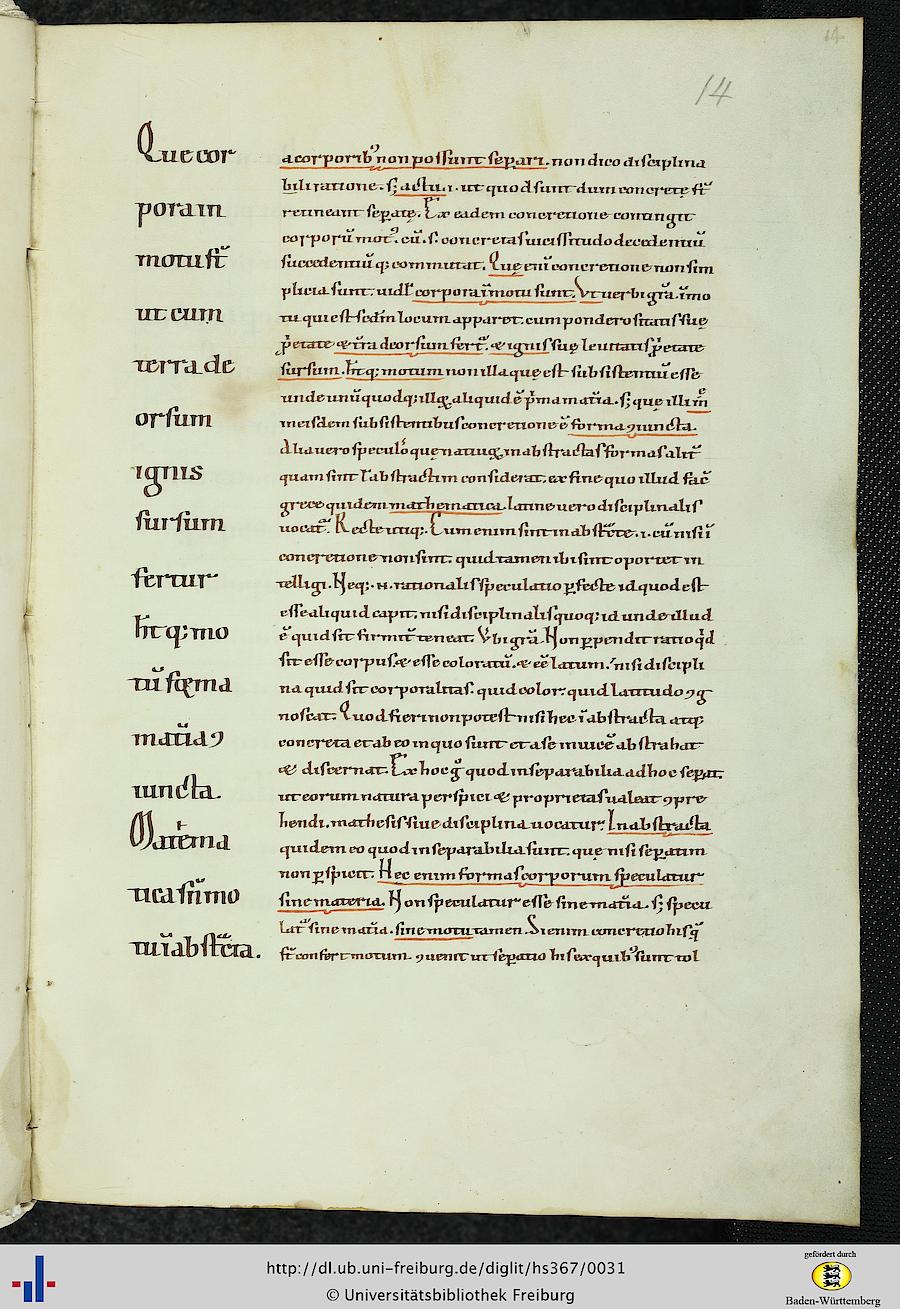 14
14
Que cor
pora in
motu st̄
ut cum
terra de
orsum
ignis
sursum
fertur
h̄t q; mo
tū foęma
mat̄ia ꝯ
iuncta.
Matema
tica sin̄ mo
tu īabstc̄ta.
a corporib᷒ non possunt sep̱ari. non dico disciplina
bili ratione. s; actu .i. ut quod sunt dum concretę st̄
retineant sep̱atę. Ex eadem concretione contingit
corporū mot᷒. cū .s. concretas uicissitudo decedentiū
succedentiū q; commutat. Quę enī concretione non sim
plicia sunt. uidl̄ corpora ī motu sunt. Vt uerbi gr̄a. īmo
tu qui est scd̄m locum apparet. cum ponderositatis suę
p̄etate & t̄ra deorsum fert᷒. & ignis suę leuitatis p̄etate
sursum. h̄t q; motum non illa quę est subsistentiū esse
unde unūquodq; illoꝝ aliquid ē p̄ma mat̄ia. s; quę illi in
in eisdem subsistentibus concretione ē forma ꝯiuncta.
Alia uero speculō quę natiuoꝝ inabstractas formas alit̄
quam sint l̄ abstractim considerat. ex fine quo illud fac̄
grece quidem mathematica latine uero disciplinalis
uocat᷒. Recte utiq;. Cum enim sint inabstc̄te .i. cū nisi ī
concretione non sint. quid tamen ibi sint oportet in
telligi. Neq; .n. rationalis speculatio ꝑfecte id quod est
esse aliquid capit. nisi disciplinalis quoq; id unde illud
ē quid sit firmit̄ teneat. Vbi gr̄a. Non ꝑpendit ratio qd̄
sit esse corpus. & esse coloratū. & eē latum. nisi discipli
na quid sit corporalitas. quid color. quid latitudo ꝯg
noscat. Quod fieri non potest nisi hec īabstracta atq;
concreta et ab eo in quo sunt et a se inuicē abstrahat
& discernat. Ex hoc g̊ quod inseparabilia ad hoc sep̱at.
ut eorum natura perspici & proprietas ualeat ꝯpre
hendi. mathesis siue disciplina uocatur. Inabstracta
quidem eo quod inseparabilia sunt. quę nisi sep̱atim
non ꝑspicit. Hec enim formas corporum speculatur
sine materia. Non speculatur esse sine mat̄ia. s; specu
lat᷒ sine mat̄ia. sine motu tamen. Sicum concretio his q̄
st̄ confert motum. ꝯuenit ut sep̱atio his ex quib᷒ sunt tol
http://dl.ub.uni-freiburg.de/diglit/hs367/0031
© Universitätsbibliothek Freiburg
gefördert durch
Baden-Württemberg